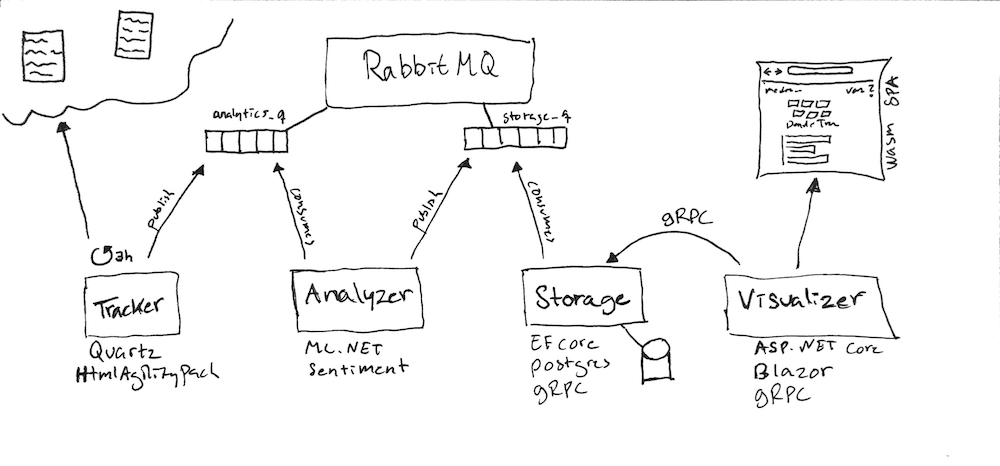 RabbitMQ
analytics_q
storage_q
publish
consumes
publish
consumes
gRPC
wasm SPA
3h
Tracker
Quartz
HtmlAgilityPack
Analyzer
ML.NET
Sentiment
Storage
EFcore
postgres
gRPC
Visualizer
ASP.NET Core
Blazor
gRPC